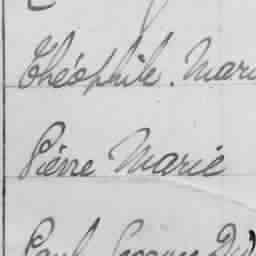 Théophile. Mari
Pierre Marie
Paul